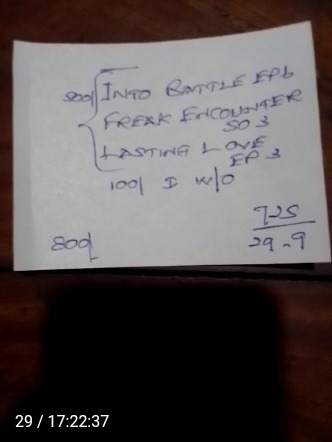 500/ INTO BATTLE EP6
FREAK ENCOUNTER
SO 3
LASTING LOVE
EP 3
100/ I W/O
925
800/ 29-9
29 / 17:22:37